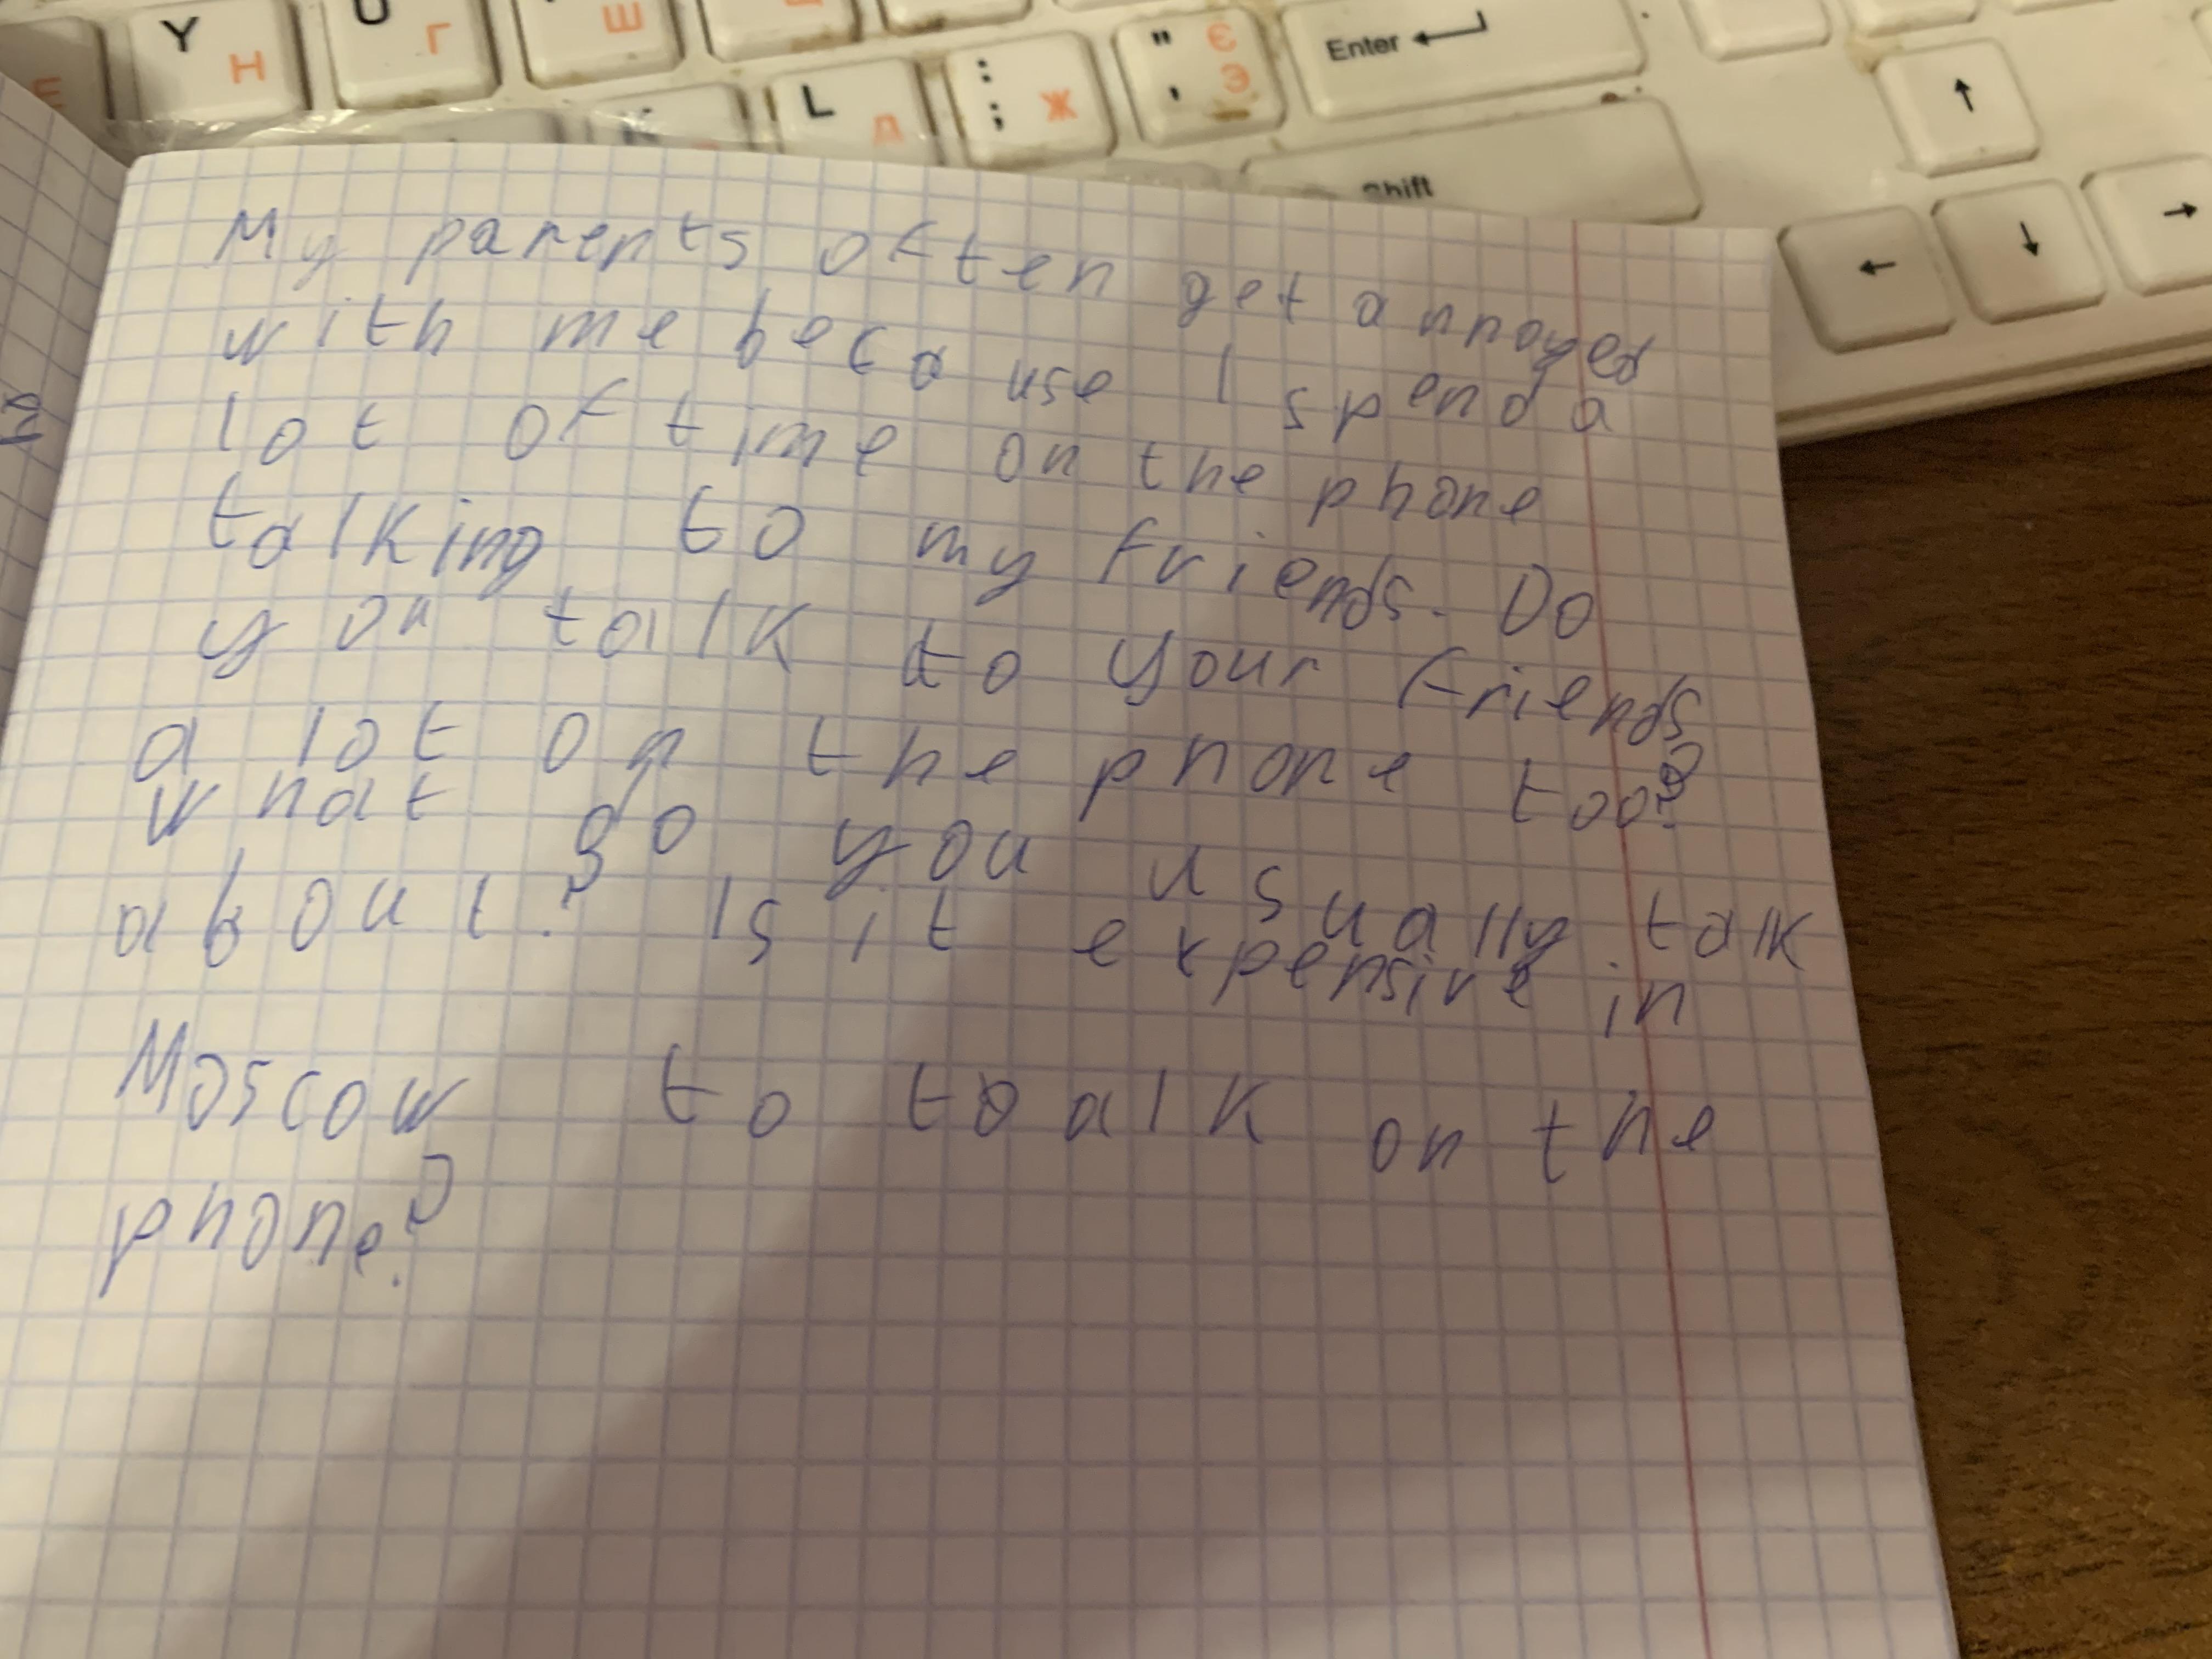 Y Н Г Ш
" Є
Enter
L Д : ; Ж , Э
Shift
My parents often get annoyed
with me because I spend a
lot of time on the phone
talking to my friends. Do
you talk to your friends
a lot on the phone too?
What do you usually talk
about? Is it expensive in
Moscow to toalk on the
phone?